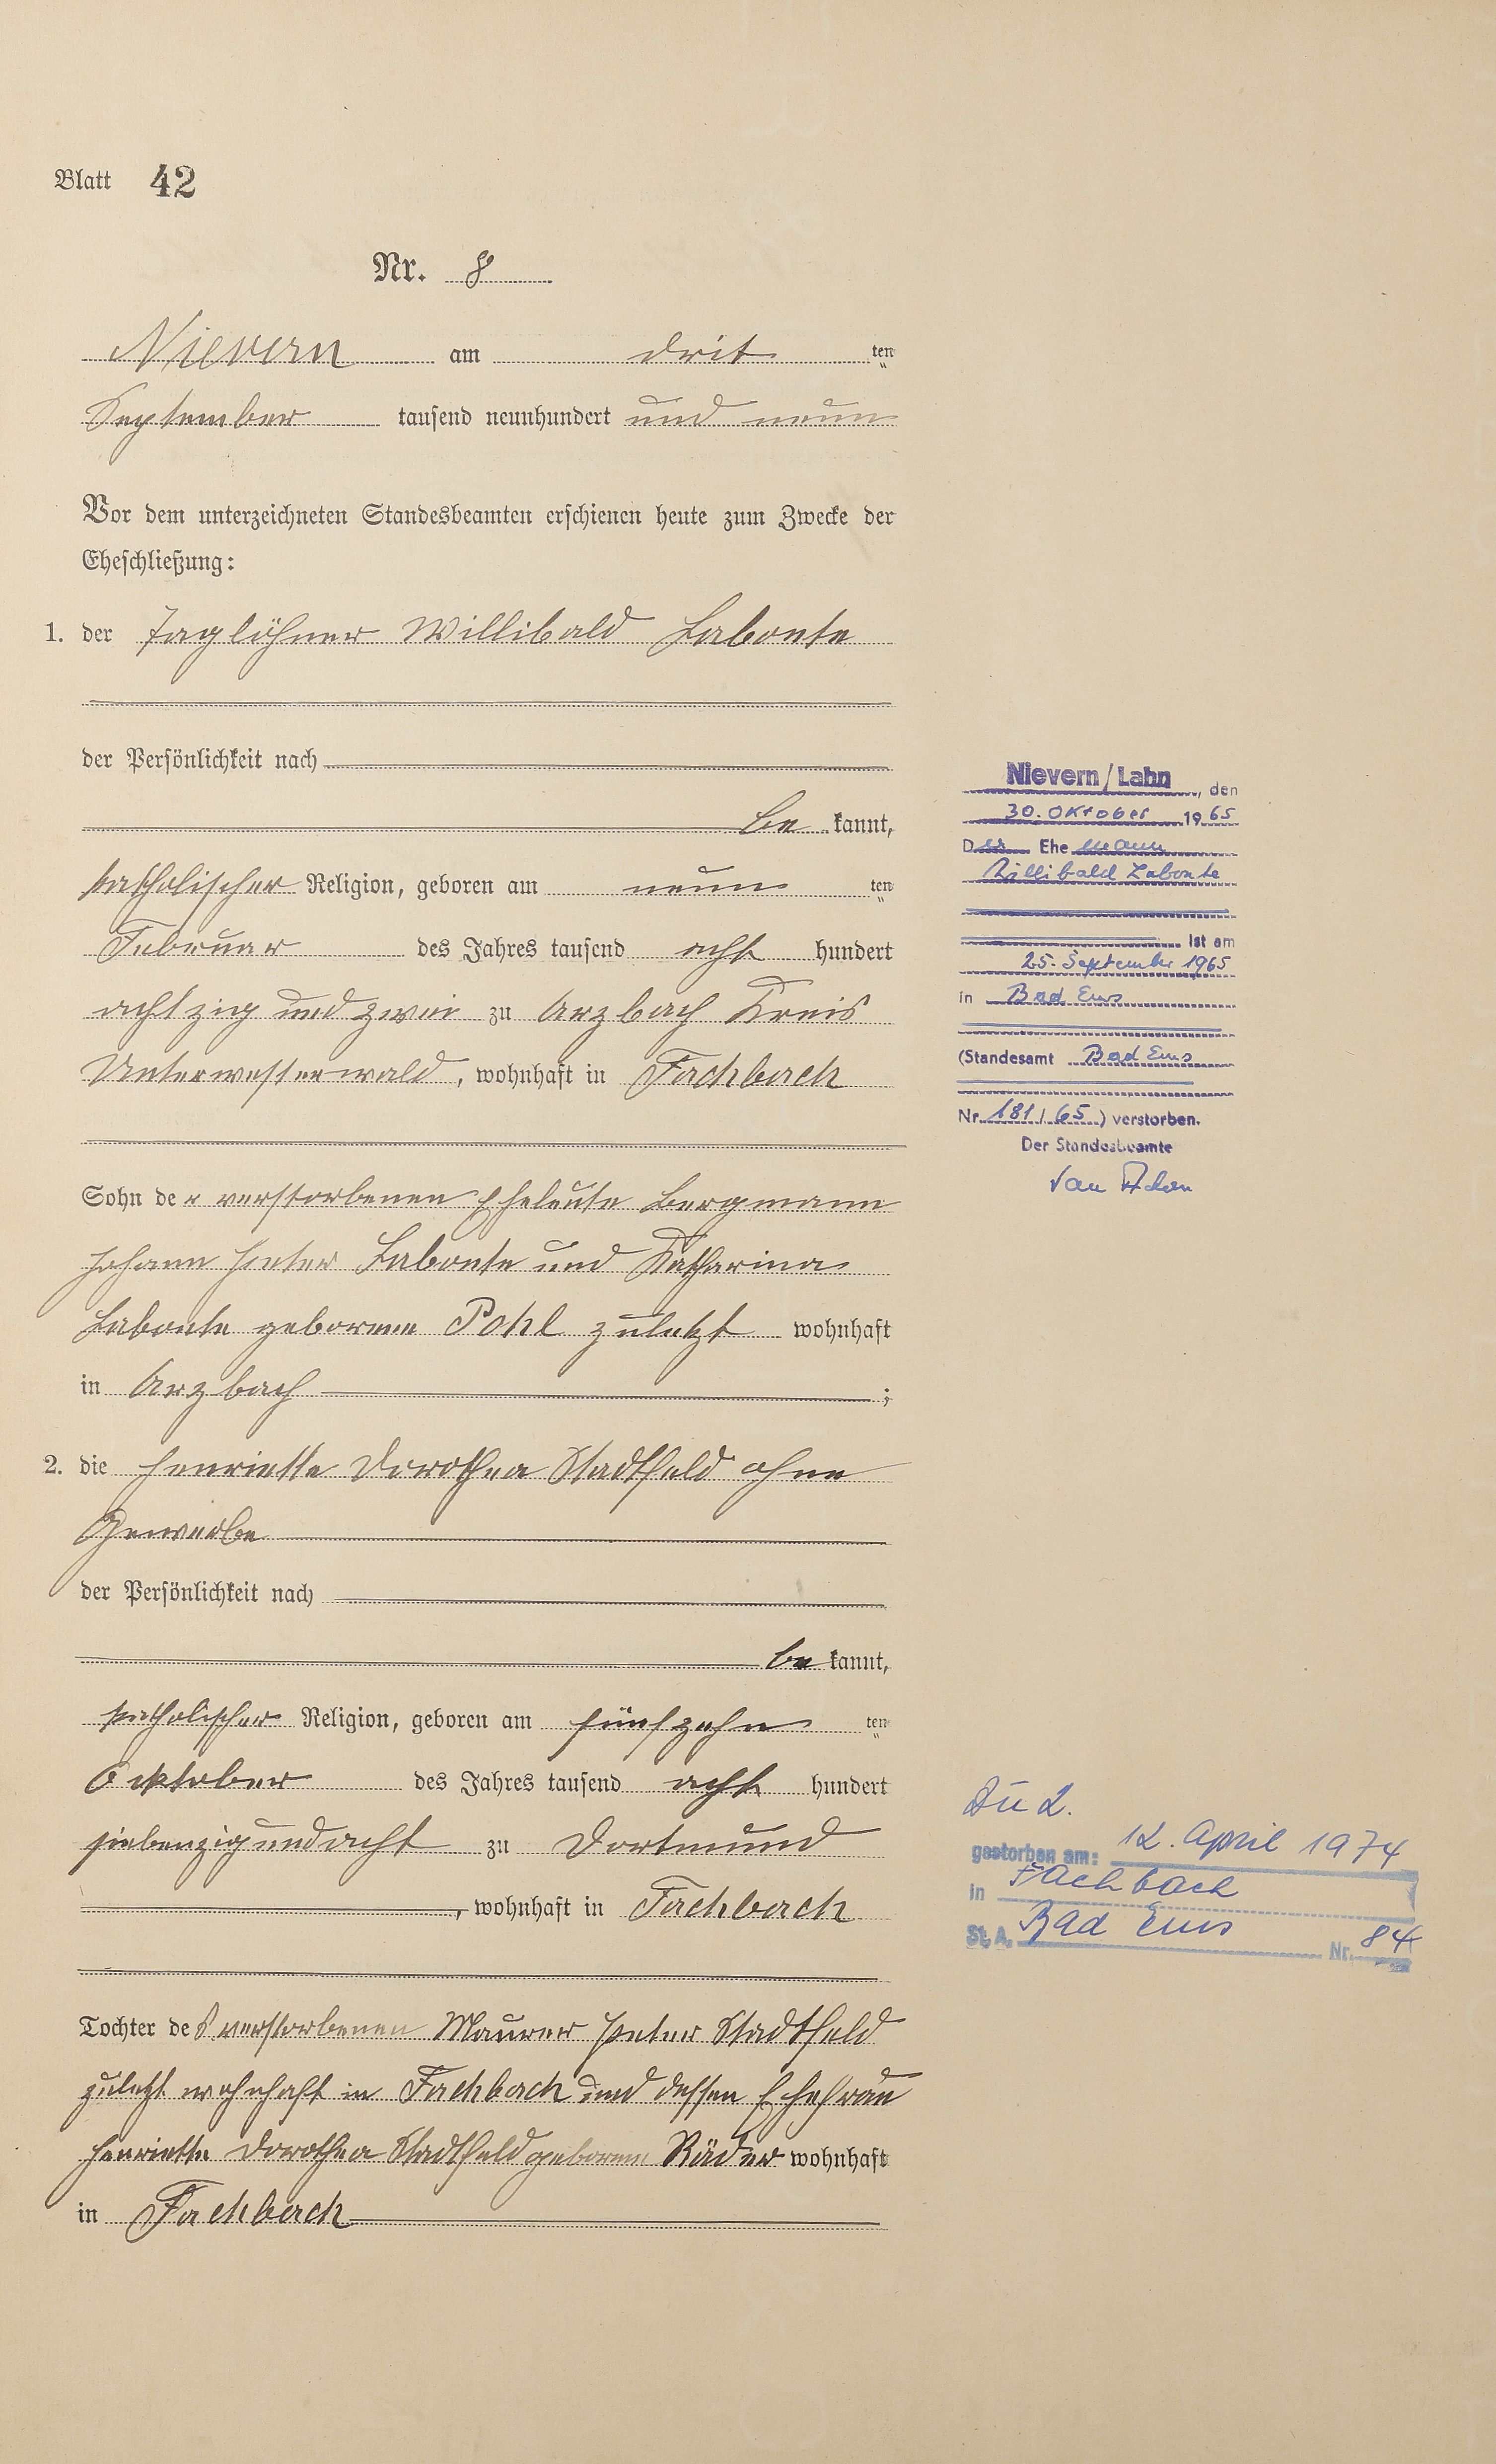 Blatt 42
Nr. 8
Nievern am drit ten
September tausend neunhundert und neun
Vor dem unterzeichneten Standesbeamten erschienen heute zum Zwecke der
Eheschließung:
1. der Taglöhner Willibald Labonte
der Persönlichkeit nach
be kannt,
katholischer Religion, geboren am neun ten
Februar des Jahres tausend acht hundert
achtzig und zwei zu Arzbach Kreis
Unterwesterwald, wohnhaft in Fachbach
Sohn der verstorbenen Eheleute Bergmann
Johann Peter Labonte und Katharina
Labonte geborene Pohl zuletzt wohnhaft
in Arzbach ;
2. die Henriette Dorothea Stadtfeld ohne
Gewerbe
der Persönlichkeit nach
be kannt,
katholischer Religion, geboren am fünfzehn ten
Ocktober des Jahres tausend acht hundert
siebenzig und acht zu Dortmund
, wohnhaft in Fachbach
Tochter des verstorbenen Maurer Peter Stadtfeld
zuletzt wohnhaft in Fachbach und dessen Ehefrau
Henriette Dorothea Stadtfeld geborene Räder wohnhaft
in Fachbach
Nievern/Lahn, den
30. Oktober 1965
Der Ehe mann
Willibald Labonte
ist am
25. September 1965
in Bad Ems
(Standesamt Bad Ems
Nr. 181/65) verstorben.
Der Standesbeamte
Zu 2.
gestorben am: 12. April 1974
in Fachbach
St. A. Bad Ems Nr. 84